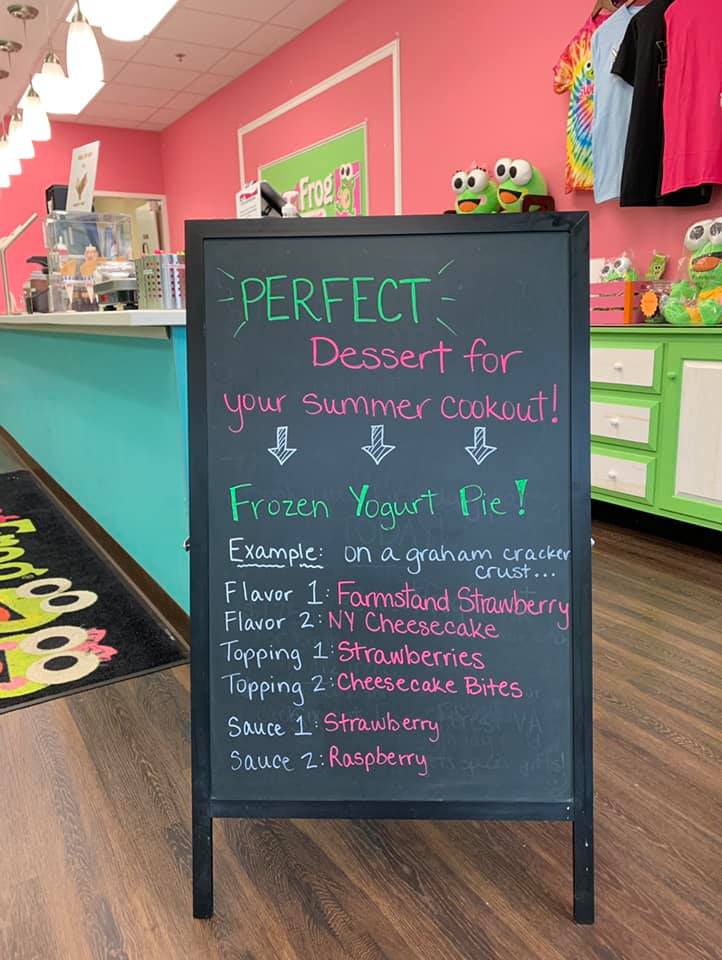 Frog
PERFECT
Dessert for
your summer cookout!
Frozen Yogurt Pie!
Example: on a graham cracker
crust...
Flavor 1: Farmstand Strawberry
Flavor 2: NY Cheesecake
Topping 1: Strawberries
Topping 2: Cheesecake Bites
Sauce 1: Strawberry
Sauce 2: Raspberry
Frog